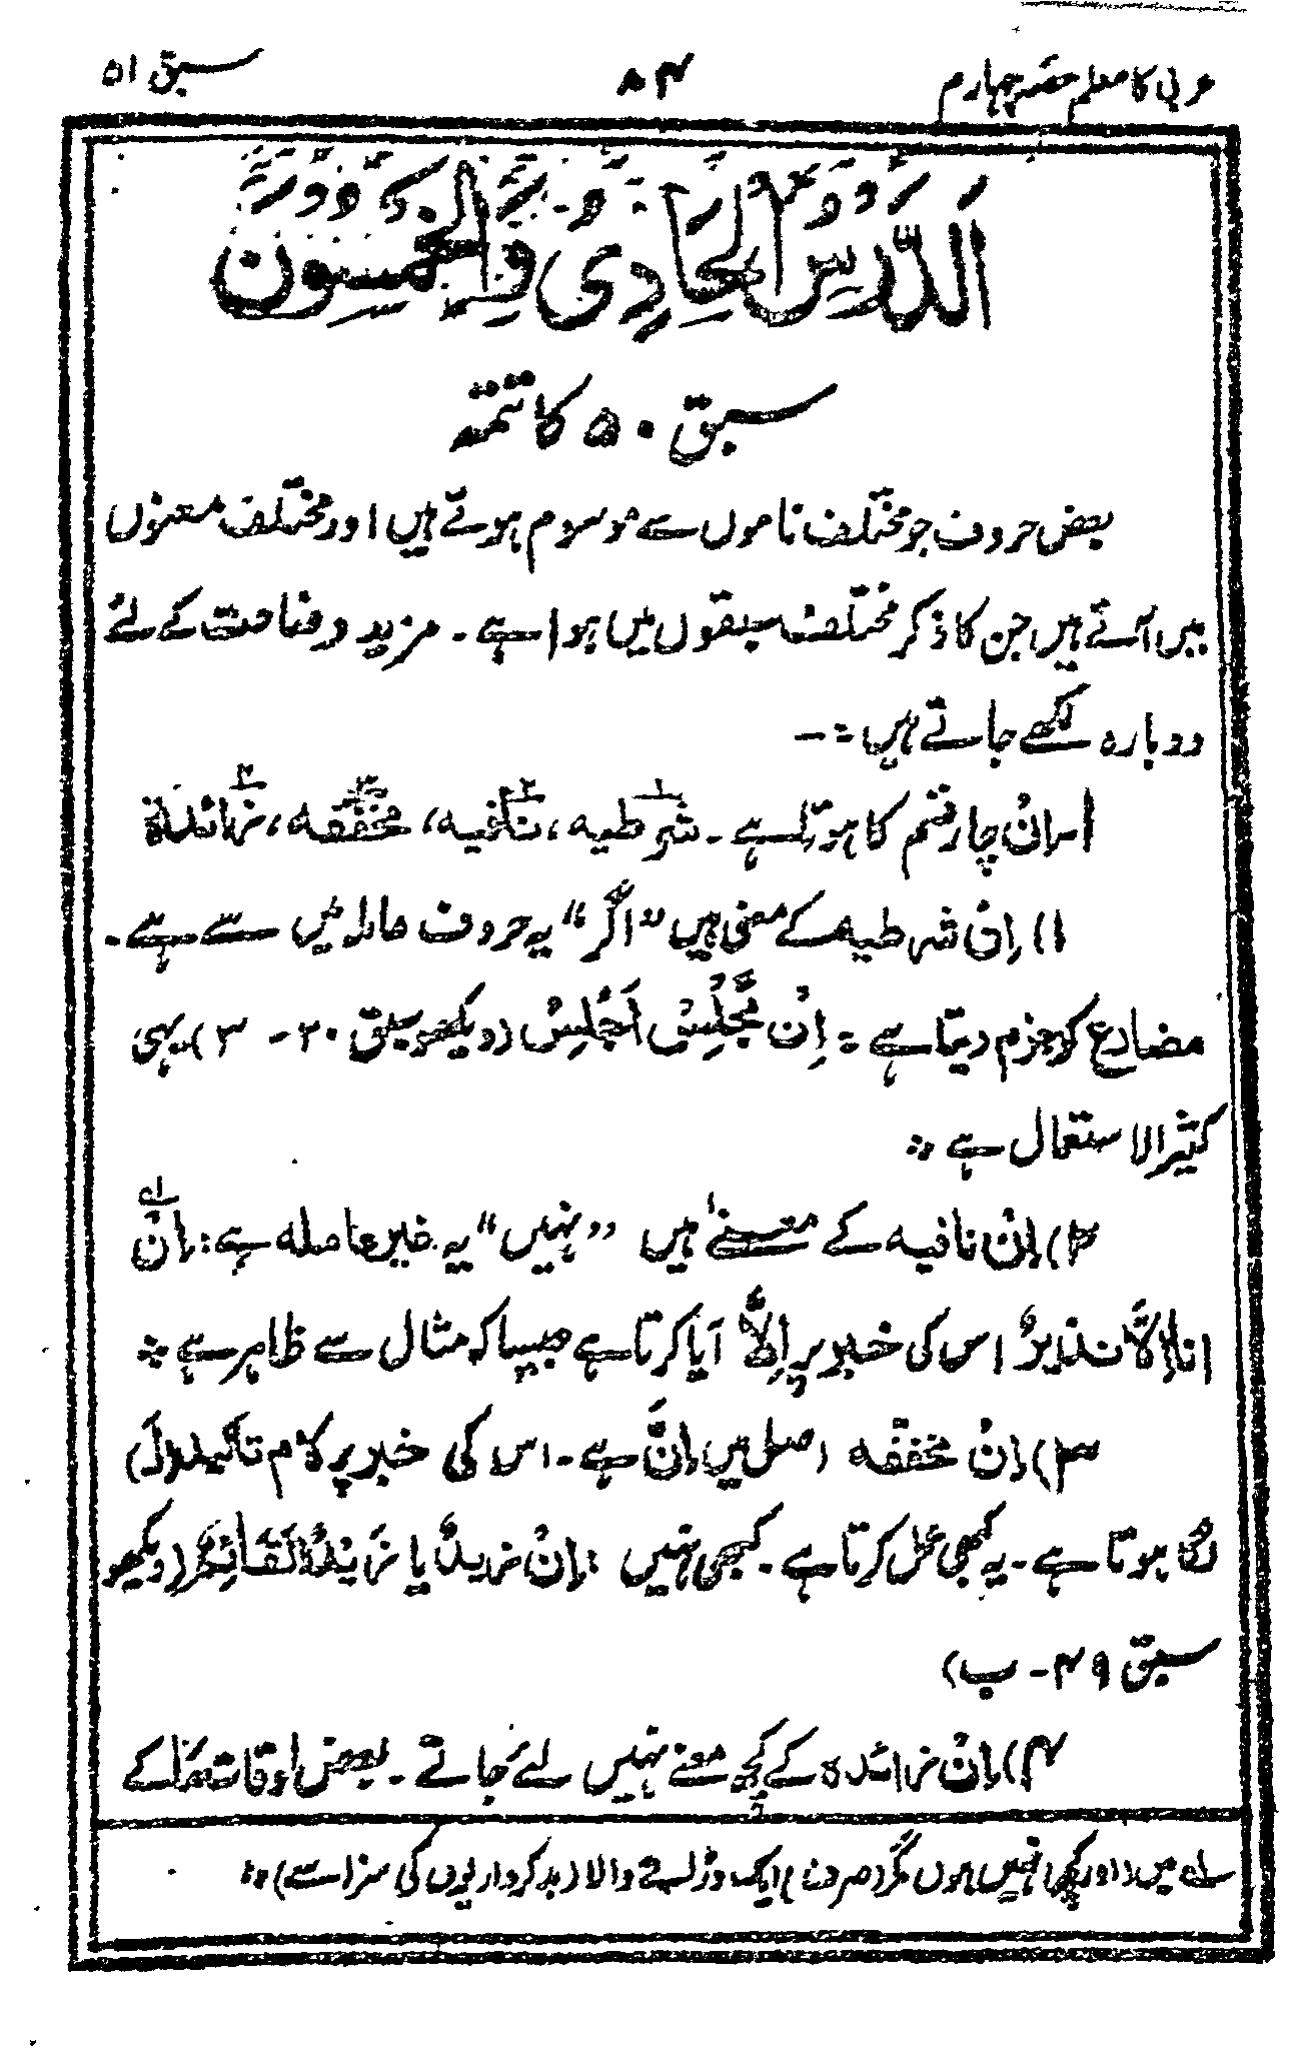 عربی کا معلم حصّہ چہارم
۸۴
سبق ۵۱
اَلدَّرْسُ الْحَادِیْ وَالْخَمْسُوْنَ
سبق ۵۰ کا تتمّہ
بعض حروف جو مختلف ناموں سے موسوم ہوتے ہیں اور مختلف معنوں
میں آتے ہیں جن کا ذکر مختلف سبقوں میں ہوا ہے ۔ مزید وضاحت کے لئے
دوبارہ لکھے جاتے ہیں :۔
۱۔ اِنْ چار قسم کا ہوتا ہے ۔ شرطیہ، نافیہ، مخفّفہ، زائدۃ
۱) اِنْ شرطیہ کے معنی ہیں ”اگر“ یہ حروف عاملہ میں سے ہے ۔
مضارع کو جزم دیتا ہے : اِنْ تَجْلِسْ اَجْلِسْ (دیکھو سبق ۲۰ - ۳) یہی
کثیر الاستعمال ہے ؞
۲) اِنْ نافیہ کے معنےٰ ہیں ”نہیں“ یہ غیر عاملہ ہے : اِنْ لہ
انا اِلَّا نذیرٌ اس کی خبر پر اِلَّا آیا کرتا ہے جیسا کہ مثال سے ظاہر ہے ؞
۳) اِنْ مخففّہ اصل میں اِنَّ ہے ۔ اس کی خبر پر لام تاکید (لَ)
لگا ہوتا ہے ۔ یہ کبھی عمل کرتا ہے ۔ کبھی نہیں : اِنْ زیداً یا زَیْدٌ لَقَائِمٌ (دیکھو
سبق ۴۹ - ب)
۴) اِنْ زائدہ کے کچھ معنے نہیں لئے جاتے ۔ بعض اوقات مَا کے
لہ میں (اور کچھ) نہیں ہوں مگر (صرف) ایک ڈرانے والا (بدکرداریوں کی سزا سے) ؞